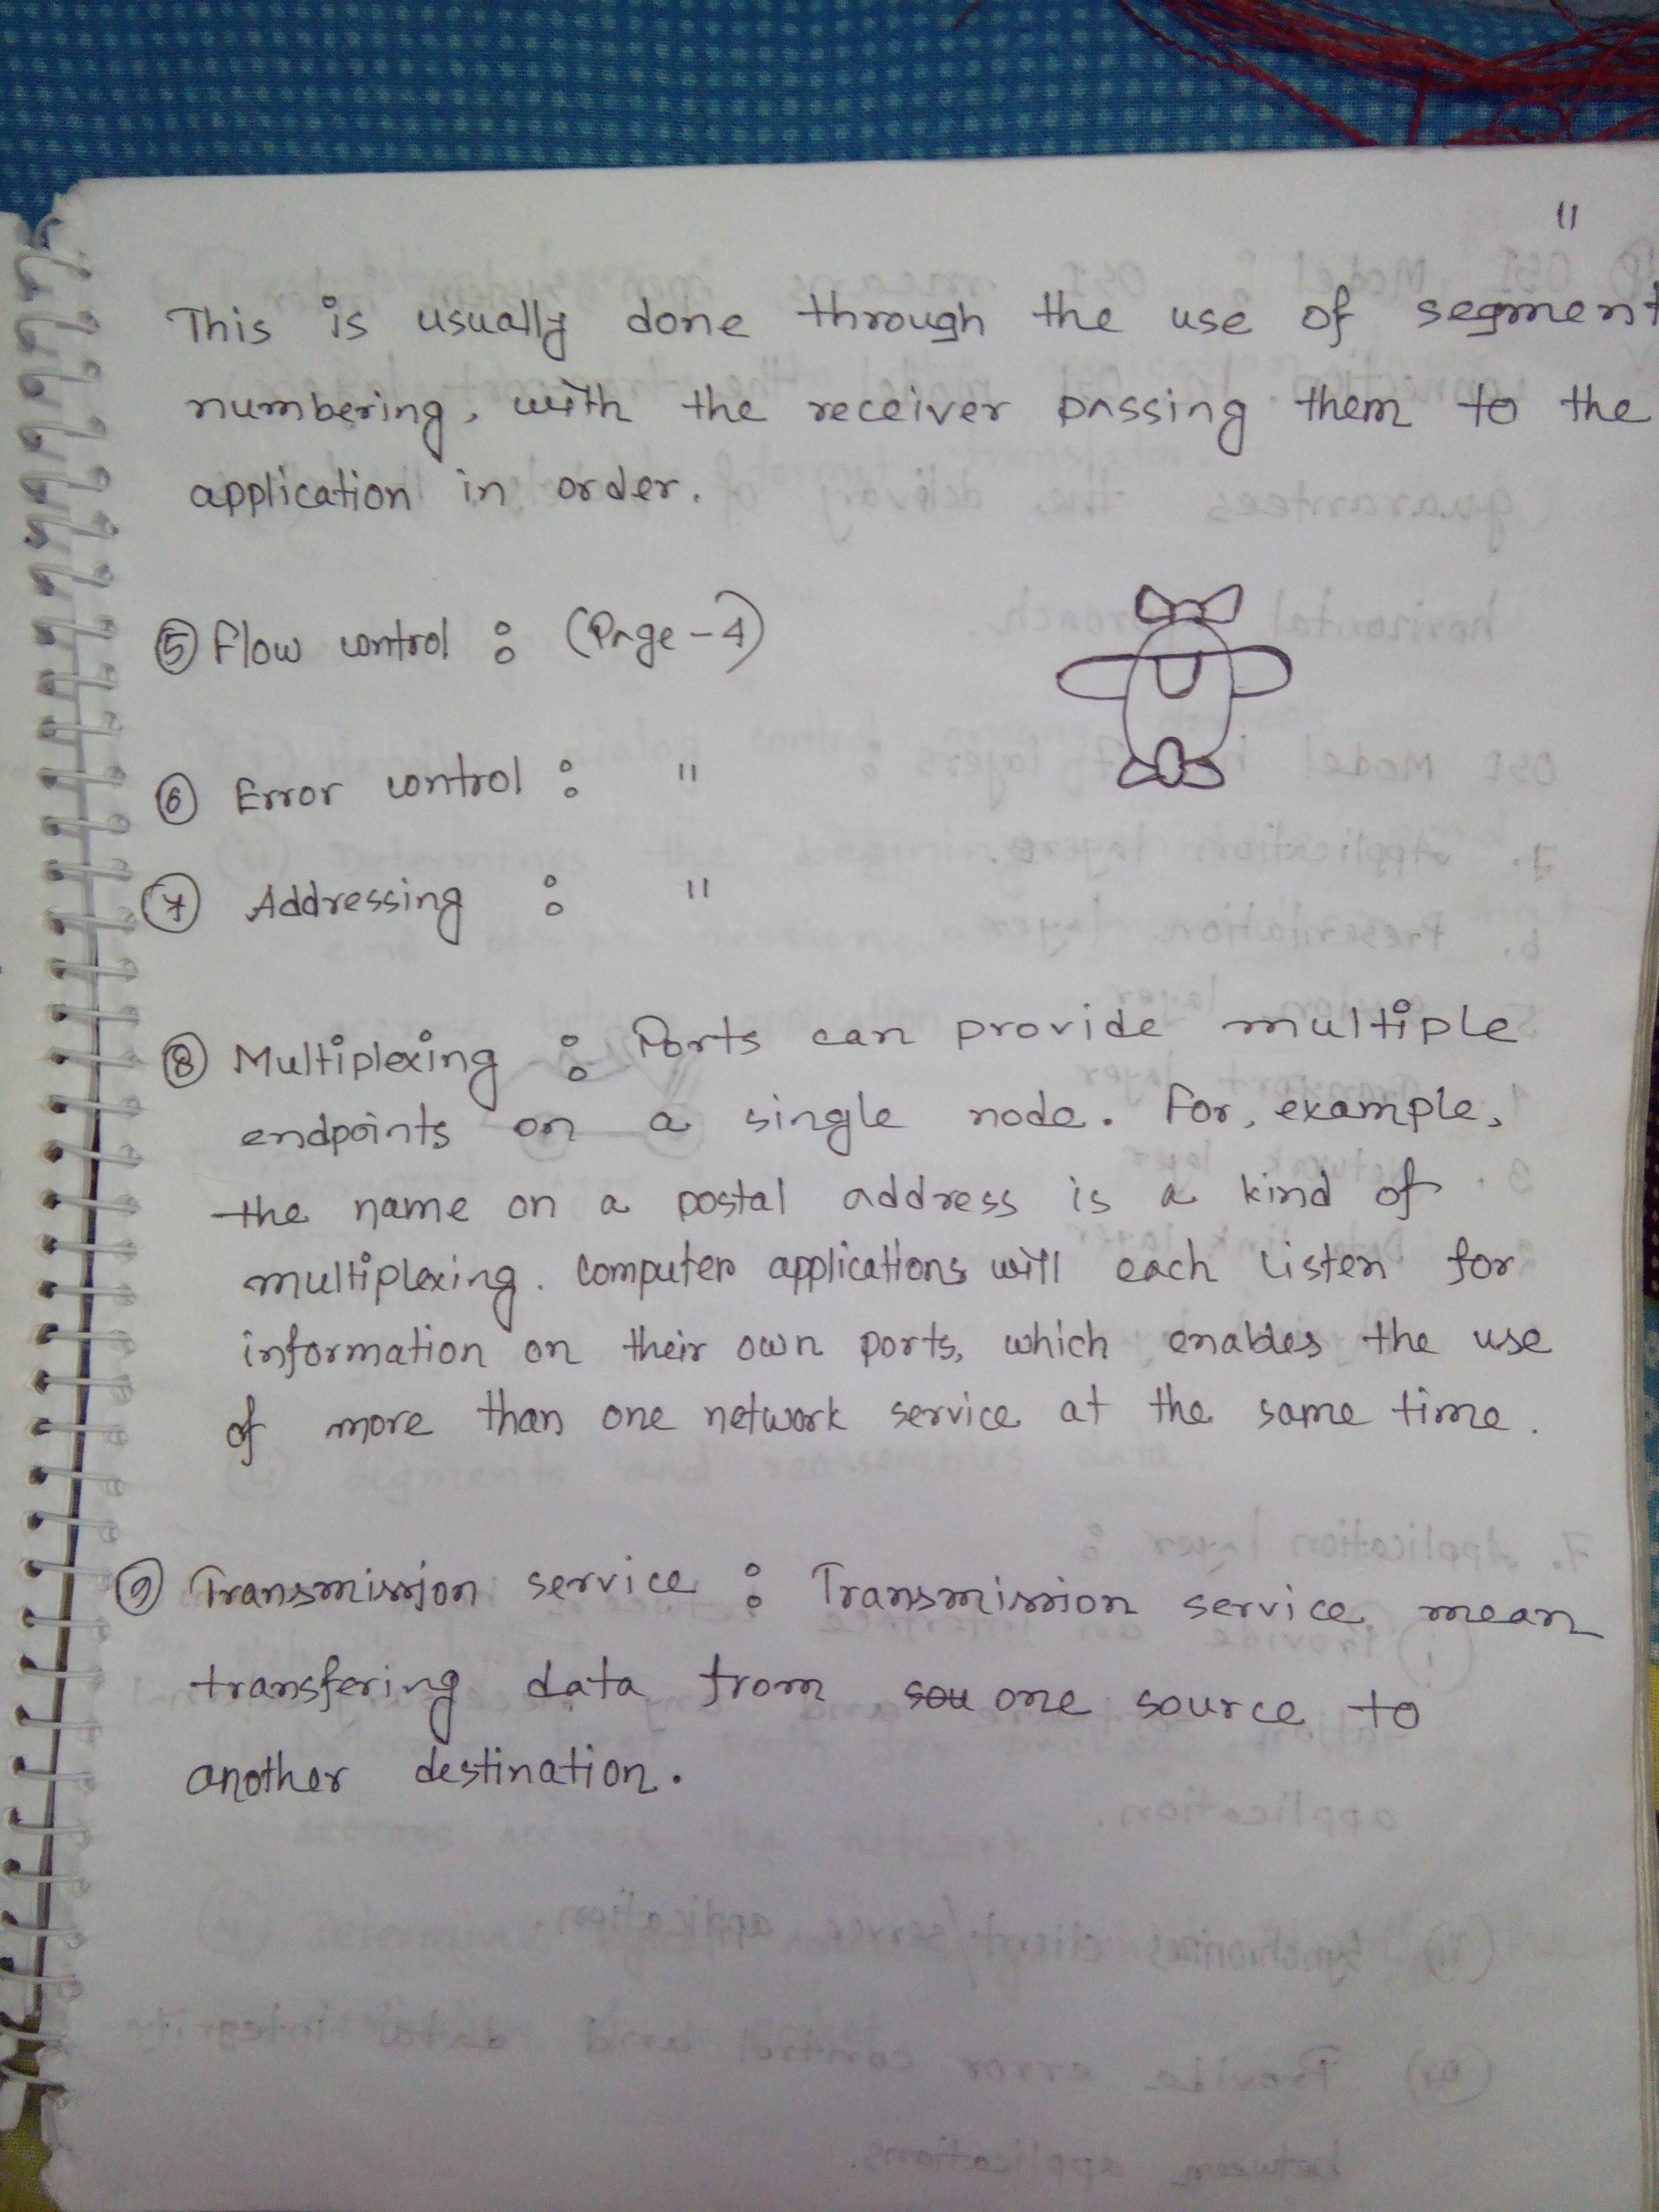 11
This is usually done through the use of segment
numbering, with the receiver passing them to the
application in order.
⑤ Flow control : (Page-4)
⑥ Error control : "
⑦ Addressing : "
⑧ Multiplexing : Ports can provide multiple
endpoints on a single node. For, example,
the name on a postal address is a kind of
multiplexing. Computer applications will each listen for
information on their own ports, which enables the use
of more than one network service at the same time.
⑨ Transmission service : Transmission service mean
transfering data from sou one source to
another destination.